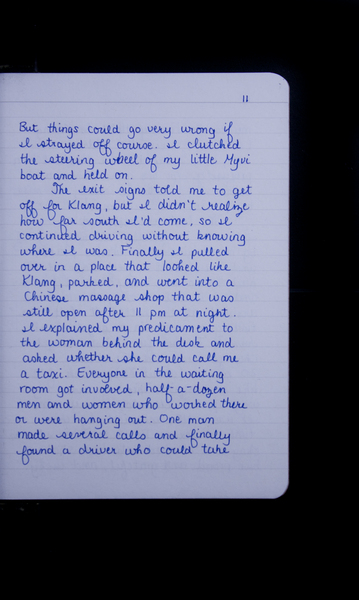 11
But things could go very wrong if
I strayed off course. I clutched
the steering wheel of my little Myvi
boat and held on.
The exit signs told me to get
off for Klang, but I didn't realize
how far south I'd come, so I
continued driving without knowing
where I was. Finally I pulled
over in a place that looked like
Klang, parked, and went into a
Chinese massage shop that was
still open after 11 pm at night.
I explained my predicament to
the woman behind the desk and
asked whether she could call me
a taxi. Everyone in the waiting
room got involved, half-a-dozen
men and women who worked there
or were hanging out. One man
made several calls and finally
found a driver who could take